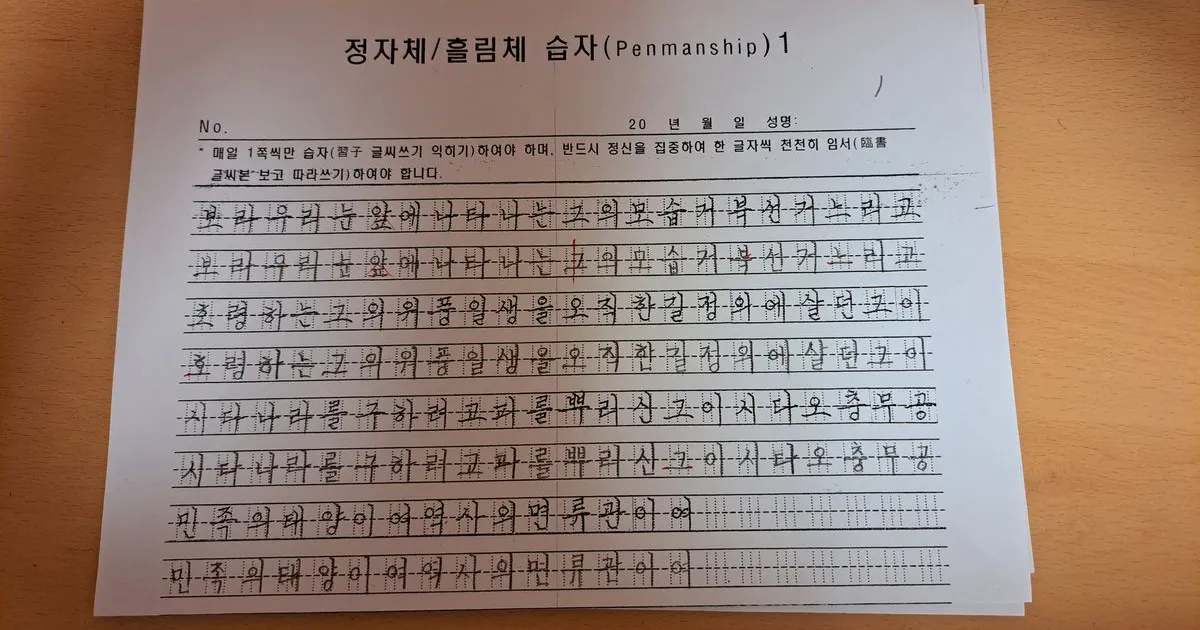 정자체/흘림체 습자(Penmanship)1
No.
20 년 월 일 성명:
* 매일 1쪽씩만 습자(習子 글씨쓰기 익히기)하여야 하며, 반드시 정신을 집중하여 한 글자씩 천천히 임서(臨書
글씨본 보고 따라쓰기)하여야 합니다.
보라우리눈앞에나타나는그의모습거북선거느리고
보라우리눈앞에나타나는그의모습거북선거느리고
호령하는그의위풍일생을오직한길정의에살던그이
호령하는그의위풍일생을오직한길정의에살던그이
시다나라를구하려고파를뿌리신그이시다오충무공
시다나라를구하려고파를뿌리신그이시다오충무공
민족의태양이여역사의면류관이여
민족의태양이여역사의면류관이여